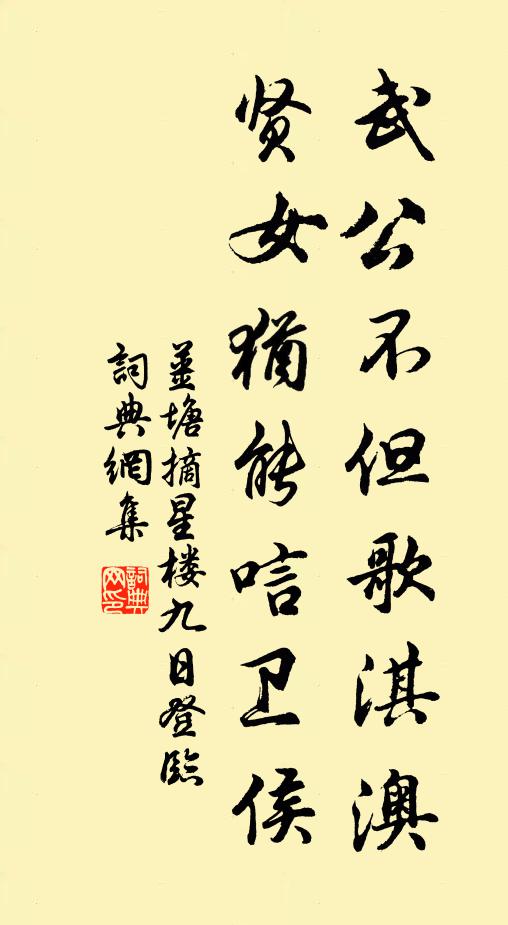 武公不但歌淇澳
贤女猶能唁卫侯
塘摘星楼九日登臨
詞典網集
詞典网印